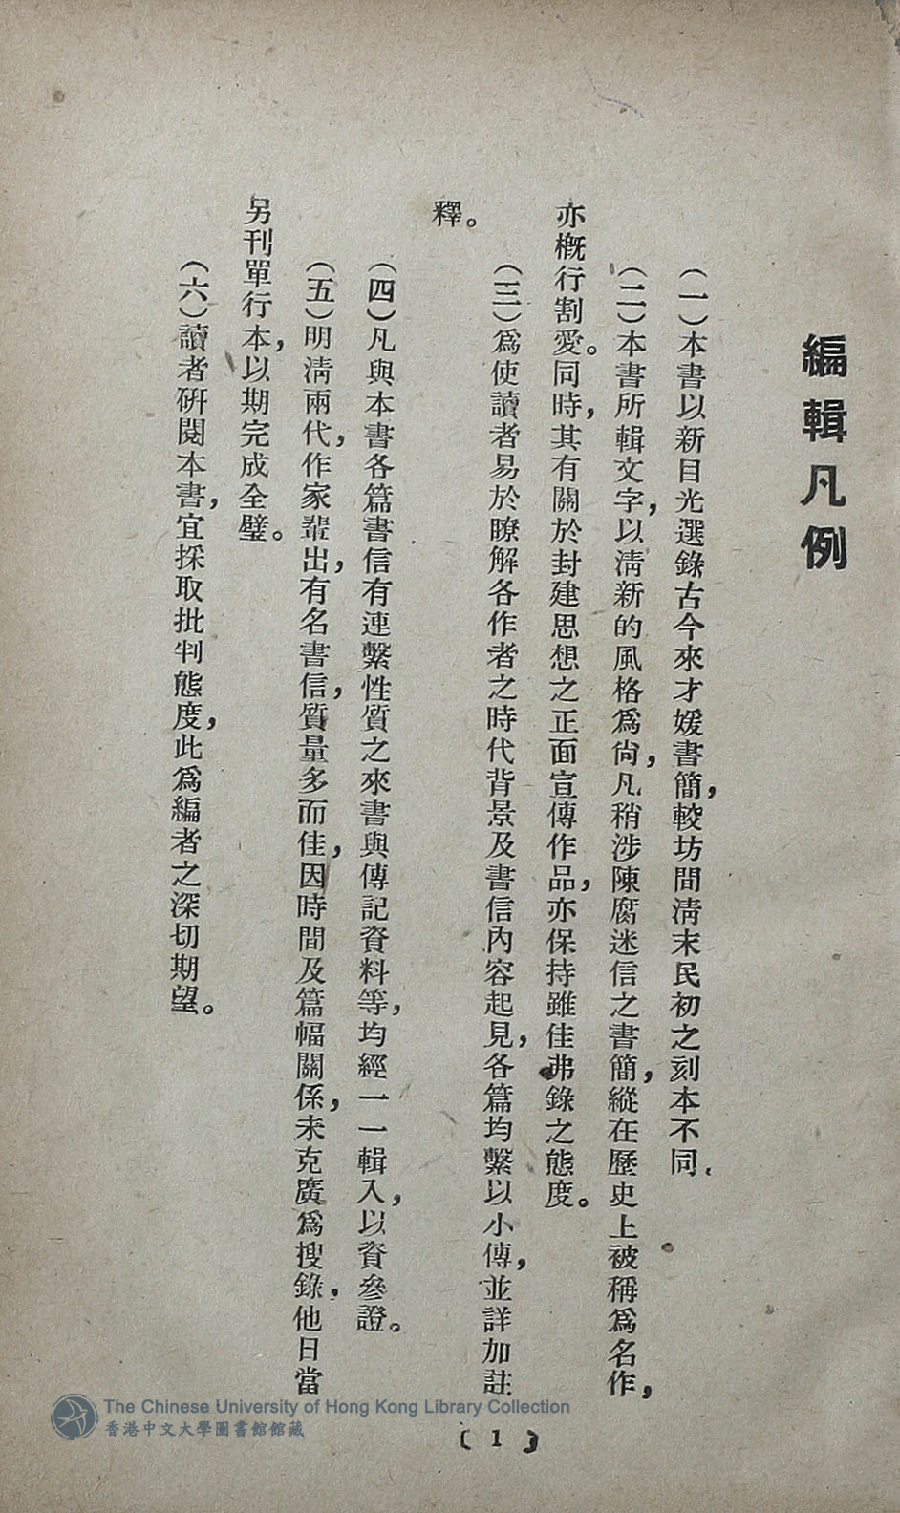 編輯凡例
(一)本書以新目光選錄古今來才媛書簡,較坊間淸末民初之刻本不同.
(二)本書所輯文字,以淸新的風格爲尙,凡稍涉陳腐迷信之書簡,縱在歷史上被稱爲名作,
亦槪行割愛。同時,其有關於封建思想之正面宣傳作品,亦保持雖佳弗錄之態度。
(三)爲使讀者易於瞭解各作者之時代背景及書信內容起見,各篇均繫以小傳,並詳加註
釋。
(四)凡與本書各篇書信有連繫性質之來書與傳記資料等,均經一一輯入,以資參證。
(五)明淸兩代,作家輩出,有名書信,質量多而佳,因時間及篇幅關係,未克廣爲搜錄,他日當
另刊單行本,以期完成全璧。
(六)讀者硏閱本書,宜採取批判態度,此爲編者之深切期望。
(1)
The Chinese University of Hong Kong Library Collection
香港中文大學圖書館館藏